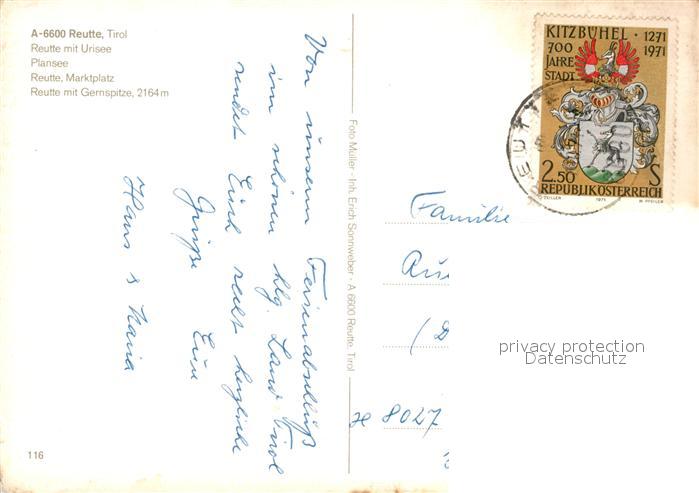 A-6600 Reutte, Tirol
Reutte mit Urisee
Plansee
Reutte, Marktplatz
Reutte mit Gernspitze, 2164 m
Von unserm Ferienabschluß
im schönen hlg. Land Tirol
sendet Euch recht herzliche
Grüße Eure
Hans & Maria
116
Foto Müller · Inh. Erich Sonnweber · A 6600 Reutte, Tirol
KITZBÜHEL · 1271
700 1971
JAHRE
STADT
2.50 S
REPUBLIK ÖSTERREICH
1971
REUTTE
Familie
(D
8027
privacy protection
Datenschutz